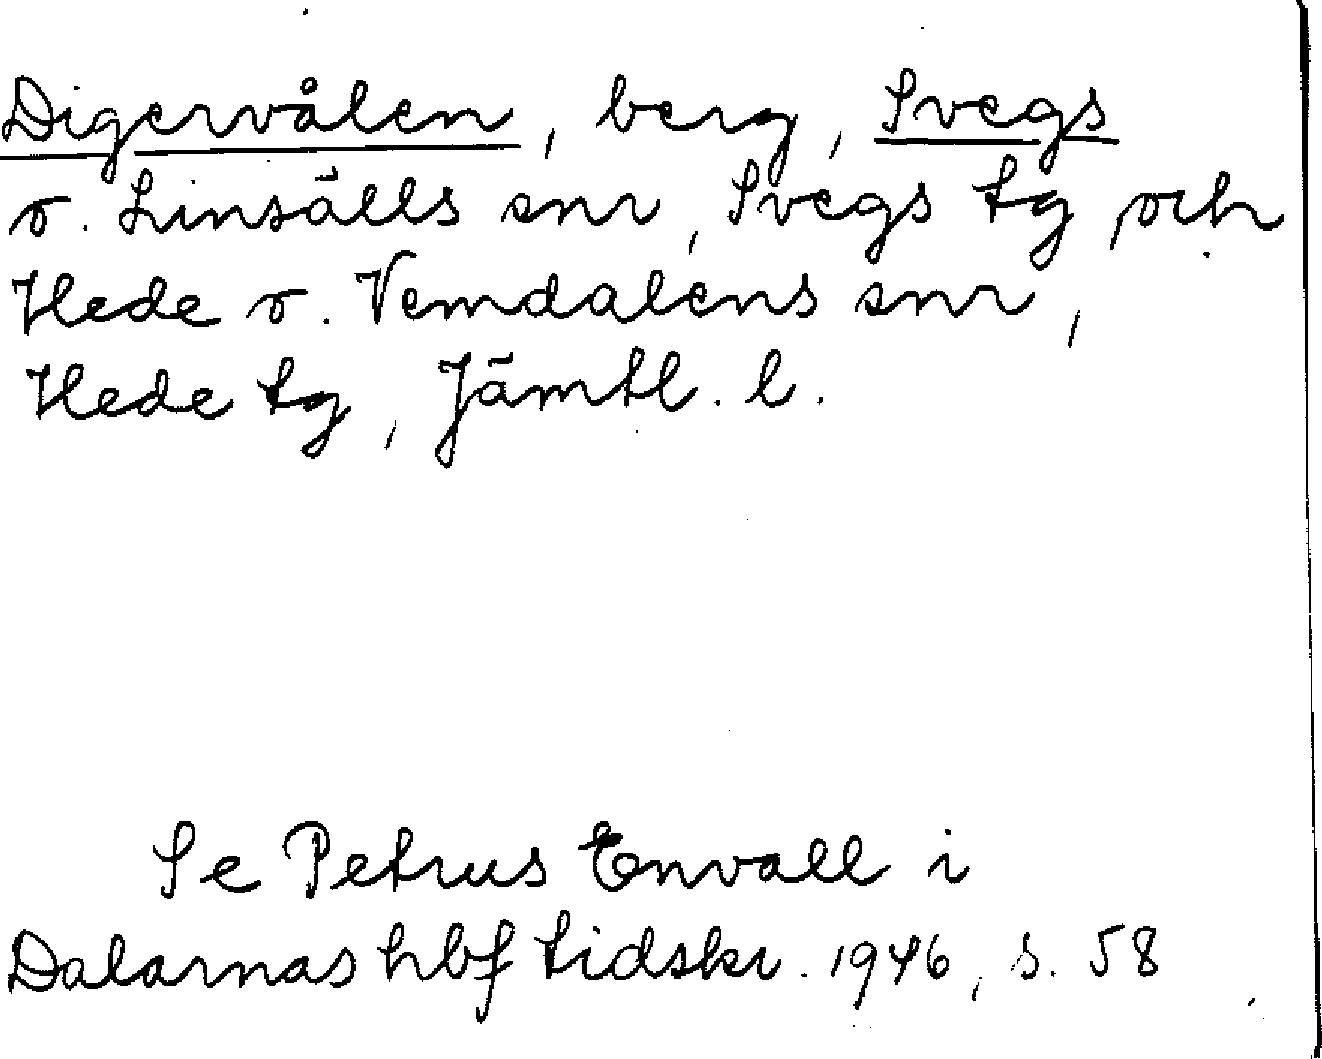 Digervålen, berg, Svegs
o. Linsälls snr, Svegs tg, och
Hede o. Vemdalens snr,
Hede tg, Jämtl. l.
Se Petrus Envall i
Dalarnas hbf tidskr. 1946, s. 58